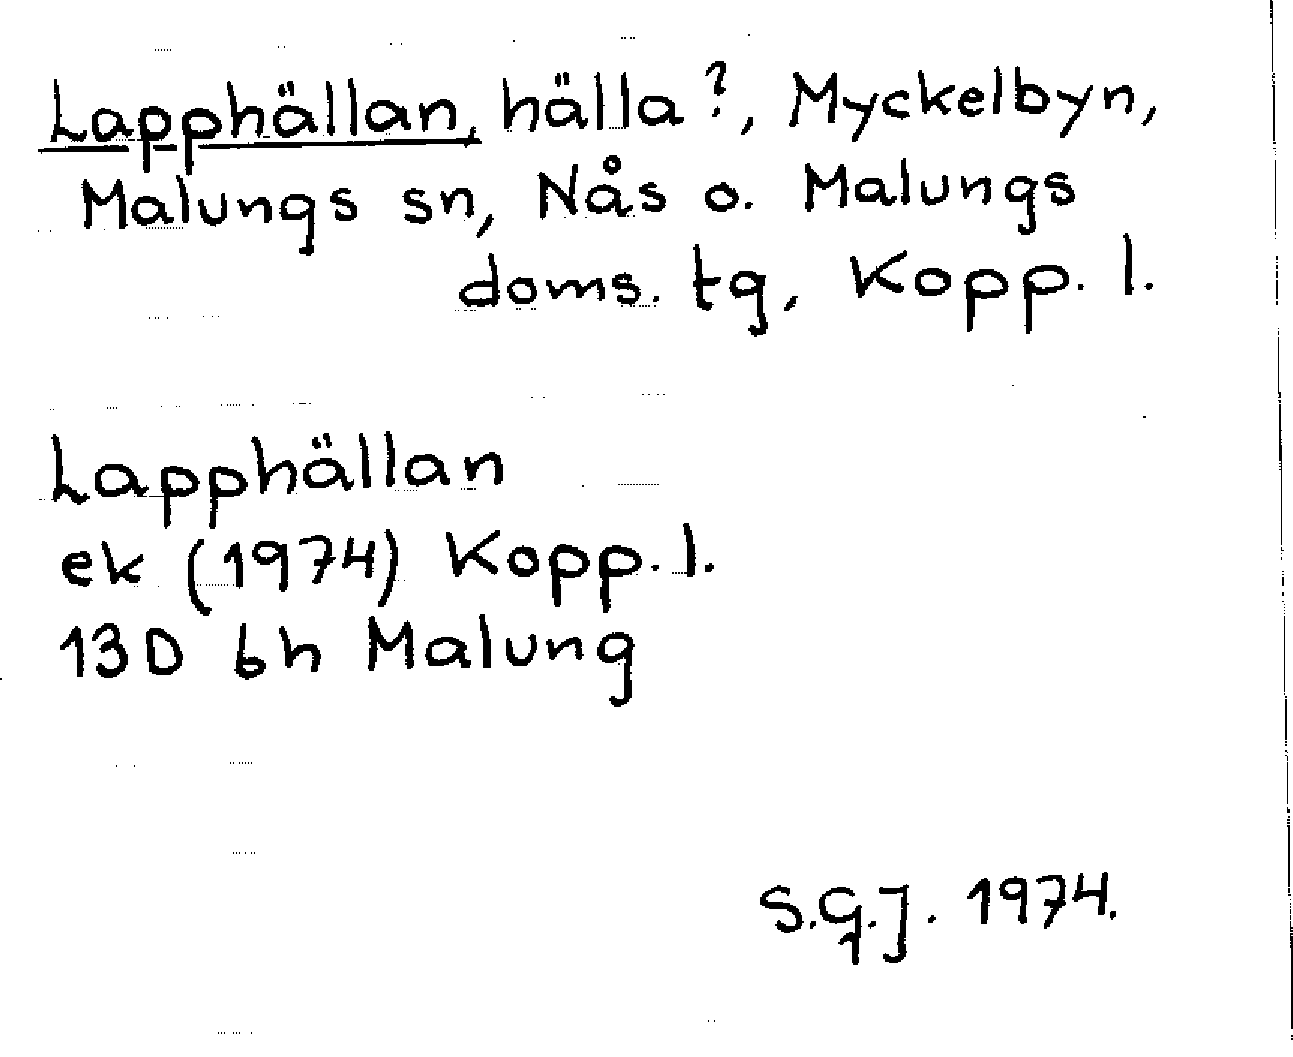 Lapphällan, hälla?, Myckelbyn,
Malungs sn, Nås o. Malungs
doms. tg, Kopp. l.
Lapphällan
ek (1974) Kopp. l.
13D 6h Malung
S.G.J. 1974.